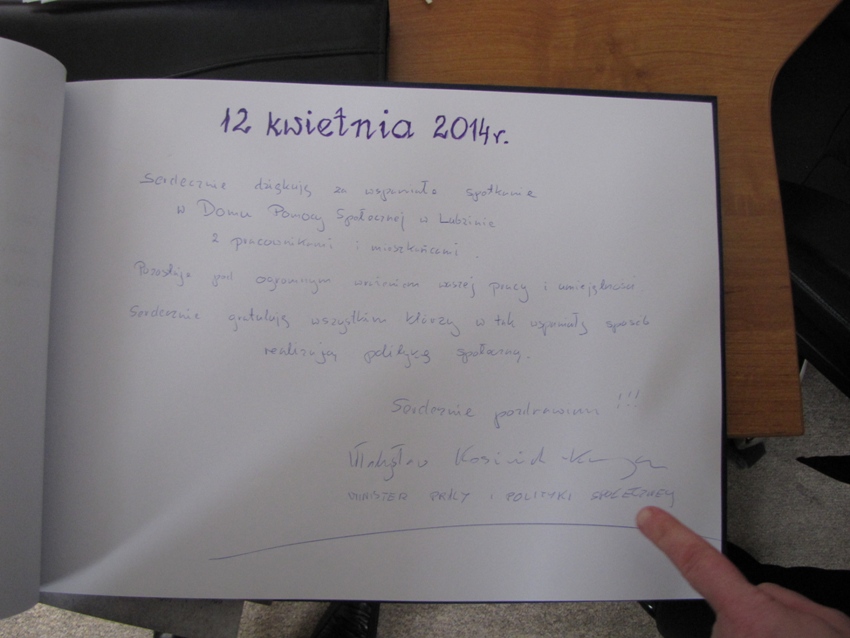 12 kwietnia 2014r.
Serdecznie dziękuję za wspaniałe spotkanie
w Domu Pomocy Społecznej w Lubzinie
z pracownikami i mieszkańcami.
Pozostaję pod ogromnym wrażeniem waszej pracy i umiejętności
Serdecznie gratuluję wszystkim którzy w tak wspaniały sposób
realizują politykę społeczną.
Serdecznie pozdrawiam !!!
Władysław Kosiniak-Kamysz
MINISTER PRACY I POLITYKI SPOŁECZNEJ